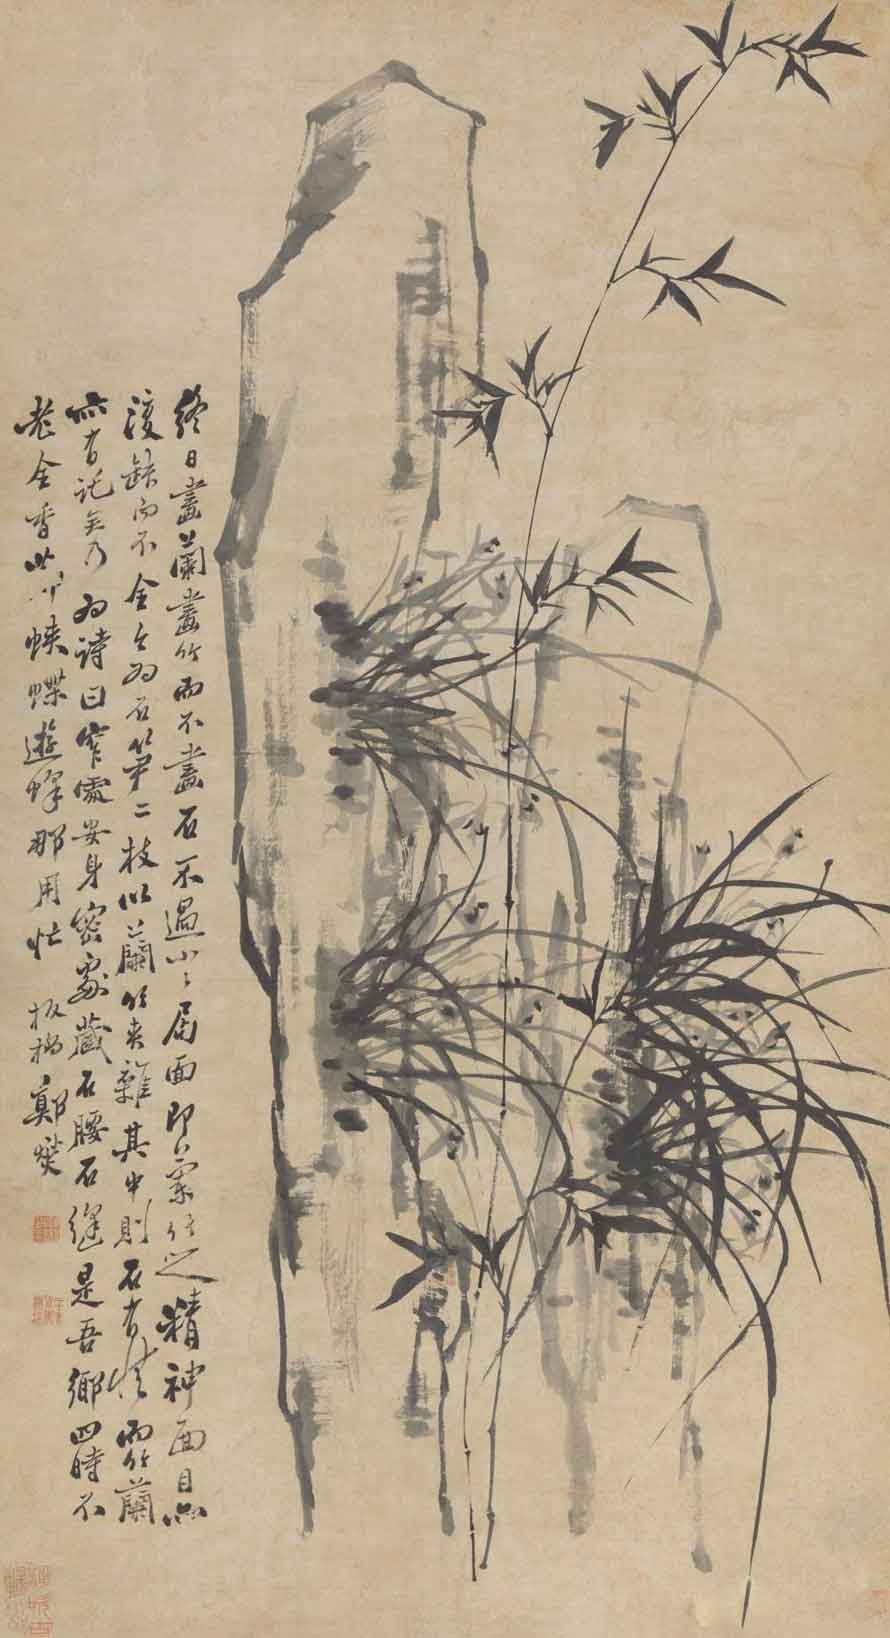 終日畫蘭畫竹而不畫石不過小小局面即蘭竹之精神面目亦
復缺而不全今為石筍二枝以蘭竹夾雜其中則石有情而竹蘭
亦有託矣乃為詩曰窄處安身密處藏石腰石縫是吾鄉四時不
老全香草蛺蝶遊蜂那用忙 板橋鄭燮